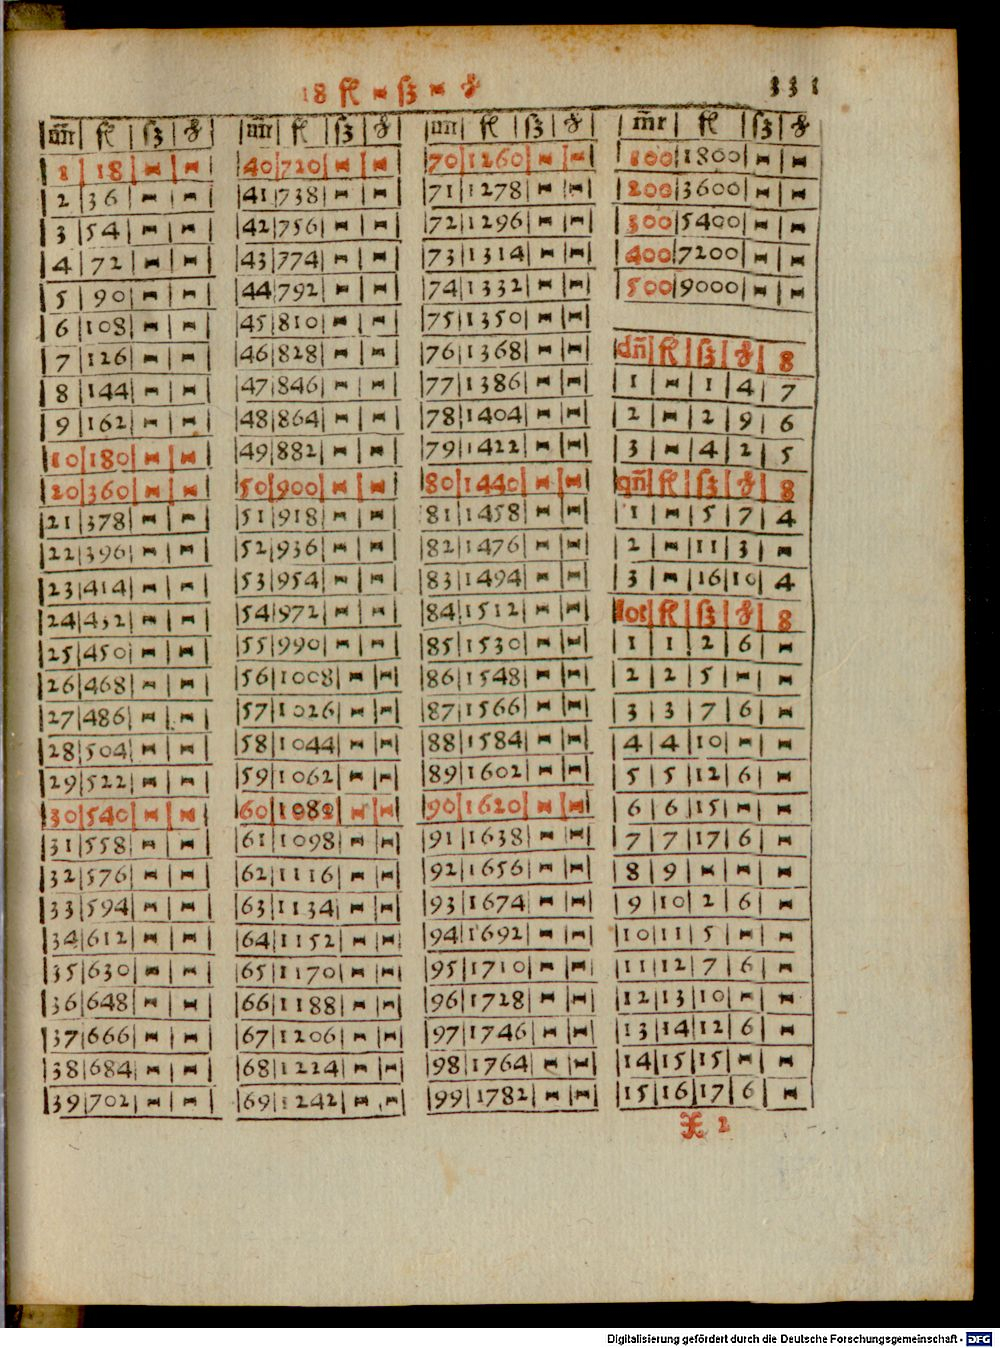 18 fl — ſʒ — ₰ 331
m̃r | fl | ſʒ | ₰
1 | 18 | — | —
2 | 36 | — | —
3 | 54 | — | —
4 | 72 | — | —
5 | 90 | — | —
6 | 108 | — | —
7 | 126 | — | —
8 | 144 | — | —
9 | 162 | — | —
10 | 180 | — | —
20 | 360 | — | —
21 | 378 | — | —
22 | 396 | — | —
23 | 414 | — | —
24 | 432 | — | —
25 | 450 | — | —
26 | 468 | — | —
27 | 486 | — | —
28 | 504 | — | —
29 | 522 | — | —
30 | 540 | — | —
31 | 558 | — | —
32 | 576 | — | —
33 | 594 | — | —
34 | 612 | — | —
35 | 630 | — | —
36 | 648 | — | —
37 | 666 | — | —
38 | 684 | — | —
39 | 702 | — | —
m̃r | fl | ſʒ | ₰
40 | 720 | — | —
41 | 738 | — | —
42 | 756 | — | —
43 | 774 | — | —
44 | 792 | — | —
45 | 810 | — | —
46 | 828 | — | —
47 | 846 | — | —
48 | 864 | — | —
49 | 882 | — | —
50 | 900 | — | —
51 | 918 | — | —
52 | 936 | — | —
53 | 954 | — | —
54 | 972 | — | —
55 | 990 | — | —
56 | 1008 | — | —
57 | 1026 | — | —
58 | 1044 | — | —
59 | 1062 | — | —
60 | 1080 | — | —
61 | 1098 | — | —
62 | 1116 | — | —
63 | 1134 | — | —
64 | 1152 | — | —
65 | 1170 | — | —
66 | 1188 | — | —
67 | 1206 | — | —
68 | 1224 | — | —
69 | 1242 | — | —
m̃r | fl | ſʒ | ₰
70 | 1260 | — | —
71 | 1278 | — | —
72 | 1296 | — | —
73 | 1314 | — | —
74 | 1332 | — | —
75 | 1350 | — | —
76 | 1368 | — | —
77 | 1386 | — | —
78 | 1404 | — | —
79 | 1422 | — | —
80 | 1440 | — | —
81 | 1458 | — | —
82 | 1476 | — | —
83 | 1494 | — | —
84 | 1512 | — | —
85 | 1530 | — | —
86 | 1548 | — | —
87 | 1566 | — | —
88 | 1584 | — | —
89 | 1602 | — | —
90 | 1620 | — | —
91 | 1638 | — | —
92 | 1656 | — | —
93 | 1674 | — | —
94 | 1692 | — | —
95 | 1710 | — | —
96 | 1728 | — | —
97 | 1746 | — | —
98 | 1764 | — | —
99 | 1782 | — | —
m̃r | fl | ſʒ | ₰
100 | 1800 | — | —
200 | 3600 | — | —
300 | 5400 | — | —
400 | 7200 | — | —
500 | 9000 | — | —
dñ | fl | ſʒ | ₰ | 8
1 | — | 1 | 4 | 7
2 | — | 2 | 9 | 6
3 | — | 4 | 2 | 5
qñ | fl | ſʒ | ₰ | 8
1 | — | 5 | 7 | 4
2 | — | 11 | 3 | —
3 | — | 16 | 10 | 4
lot | fl | ſʒ | ₰ | 8
1 | 1 | 2 | 6 | —
2 | 2 | 5 | — | —
3 | 3 | 7 | 6 | —
4 | 4 | 10 | — | —
5 | 5 | 12 | 6 | —
6 | 6 | 15 | — | —
7 | 7 | 17 | 6 | —
8 | 9 | — | — | —
9 | 10 | 2 | 6 | —
10 | 11 | 5 | — | —
11 | 12 | 7 | 6 | —
12 | 13 | 10 | — | —
13 | 14 | 12 | 6 | —
14 | 15 | 15 | — | —
15 | 16 | 17 | 6 | —
X 2
Digitalisierung gefördert durch die Deutsche Forschungsgemeinschaft - DFG